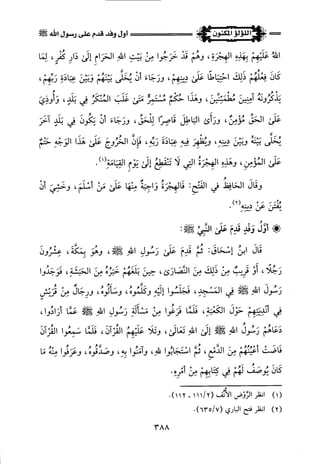 اللؤلؤ المكنون
أول وفد قدم على رسول الله ﷺ
اللهُ عَلَيْهِمْ بِهَذِهِ الهِجْرَةِ، وهُمْ قَدْ خَرَجُوا مِنْ بَيْتِ اللهِ الحَرَامِ إِلَىٰ دَارِ كُفْرٍ، لِمَا
كَانَ فِعْلُهُمْ ذَلِكَ احْتِيَاطًا عَلَىٰ دِينِهِمْ، ورَجَاءَ أَنْ يُخَلَّىٰ بَيْنَهُمْ وبَيْنَ عِبَادَةِ رَبِّهِمْ،
يَذْكُرُونَهُ آمِنِينَ مُطْمَئِنِّينَ، وهَذَا حُكْمٌ مُسْتَمِرٌّ مَتَىٰ غَلَبَ المُنْكَرُ فِي بَلَدٍ، وأُوذِيَ
عَلَىٰ الحَقِّ مُؤْمِنٌ، ورَأَىٰ البَاطِلَ قَاهِرًا لِلْحَقِّ، ورَجَاءَ أَنْ يَكُونَ فِي بَلَدٍ آخَرَ
يُخَلَّىٰ بَيْنَهُ وبَيْنَ دِينِهِ، ويُظْهِرَ فِيهِ عِبَادَةَ رَبِّهِ، فَإِنَّ الخُرُوجَ عَلَىٰ هَذَا الوَجْهِ حَتْمٌ
عَلَىٰ المُؤْمِنِ، وهَذِهِ الهِجْرَةُ التِي لَا تَنْقَطِعُ إِلَىٰ يَوْمِ القِيَامَةِ(١).
وقَالَ الحَافِظُ فِي الفَتْحِ: فَالهِجْرَةُ وَاجِبَةٌ مِنْهَا عَلَىٰ مَنْ أَسْلَمَ، وخَشِيَ أَنْ
يُفْتَنَ عَنْ دِينِهِ(٢).
❁ أَوَّلُ وَفْدٍ قَدِمَ عَلَىٰ النَّبِيِّ ﷺ:
قَالَ ابنُ إِسْحَاقَ: ثُمَّ قَدِمَ عَلَىٰ رَسُولِ اللهِ ﷺ، وهُوَ بِمَكَّةَ، عِشْرُونَ
رَجُلًا، أَوْ قَرِيبٌ مِنْ ذَلِكَ مِنَ النَّصَارَىٰ، حِينَ بَلَغَهُمْ خَبَرُهُ مِنَ الحَبَشَةِ، فَوَجَدُوا
رَسُولَ اللهِ ﷺ فِي المَسْجِدِ، فَجَلَسُوا إِلَيْهِ وكَلَّمُوهُ، وسَأَلُوهُ، ورِجَالٌ مِنْ قُرَيْشٍ
فِي أَنْدِيَتِهِمْ حَوْلَ الكَعْبَةِ، فَلَمَّا فَرَغُوا مِنْ مَسْأَلَةِ رَسُولِ اللهِ ﷺ عَمَّا أَرَادُوا،
دَعَاهُمْ رَسُولُ اللهِ ﷺ إِلَىٰ اللهِ تَعَالَىٰ، وتَلَا عَلَيْهِمُ القُرْآنَ، فَلَمَّا سَمِعُوا القُرْآنَ
فَاضَتْ أَعْيُنُهُمْ مِنَ الدَّمْعِ، ثُمَّ اسْتَجَابُوا للهِ، وآمَنُوا بِهِ، وصَدَّقُوهُ، وعَرَفُوا مِنْهُ مَا
كَانَ يُوصَفُ لَهُمْ فِي كِتَابِهِمْ مِنْ أَمْرِهِ.
(١) انظر الرَّوْض الأُنُف (١١١/٢ - ١١٢).
(٢) انظر فتح الباري (٦٣٥/٧).
٣٨٨